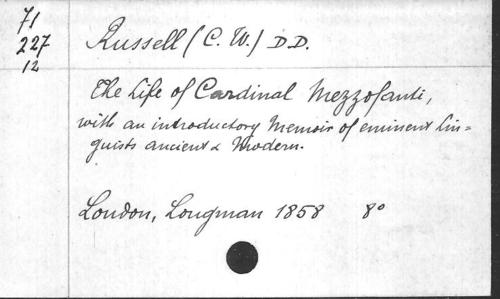 71
227
12
Russell (C. W.) D.D.
The Life of Cardinal Mezzofanti,
with an introductory Memoir of eminent Lin=
guists ancient & Modern.
London, Longman 1858 8°